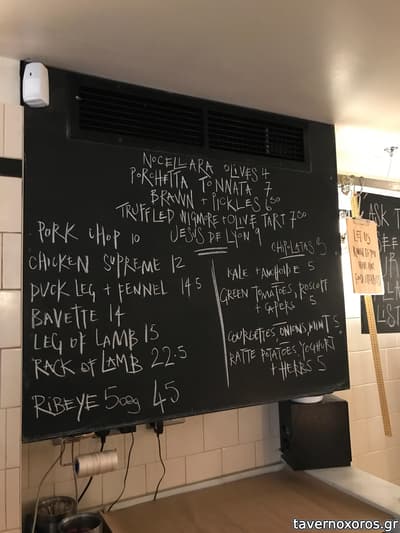 NOCELLARA OLIVES 4
PORCHETTA TONNATA 7
BRAWN + PICKLES 6.50
TRUFFLED WIGMORE + OLIVE TART 7.50
JESUS DE LYON 9
CHIPOLATAS 8
PORK CHOP 10
CHICKEN SUPREME 12
DUCK LEG + FENNEL 14.5
BAVETTE 14
LEG OF LAMB 15
RACK OF LAMB 22.5
RIBEYE 500g 45
KALE + ANCHOIADE 5
GREEN TOMATOES, 
+ CAPERS 5
COURGETTES, ONIONS, MINT 5
RATTE POTATOES, YOGHURT
+ HERBS 5
ASK T
LET US
KNOW IF YOU
HAVE ANY
tavernoxoros.gr